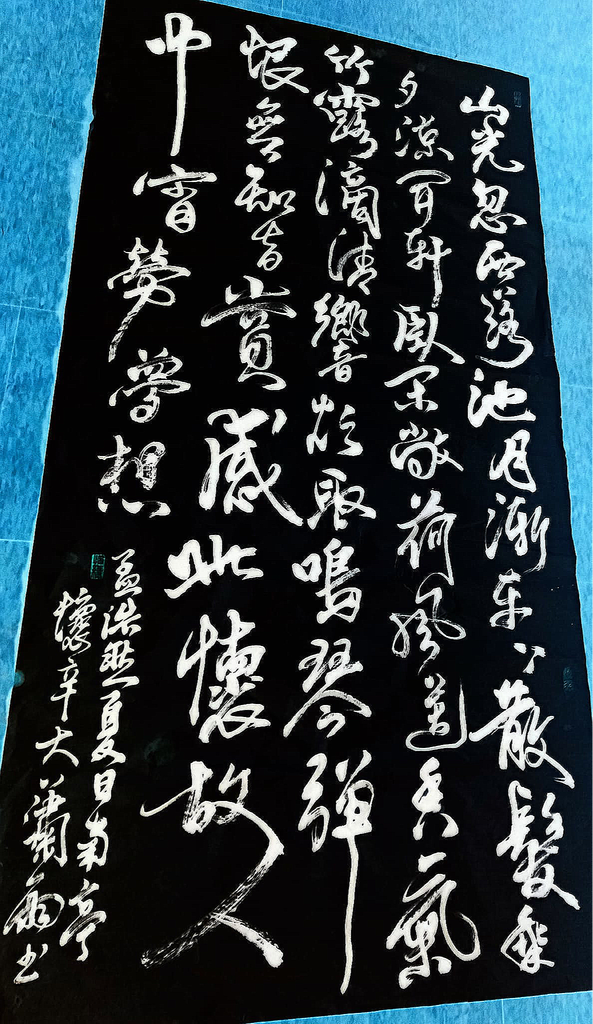 山光忽西落池月漸東上散髮乘
夕涼開軒臥閑敞荷風送香氣
竹露滴清響欲取鳴琴彈
恨無知音賞感此懷故人
中宵勞夢想
孟浩然夏日南亭
懷辛大 書